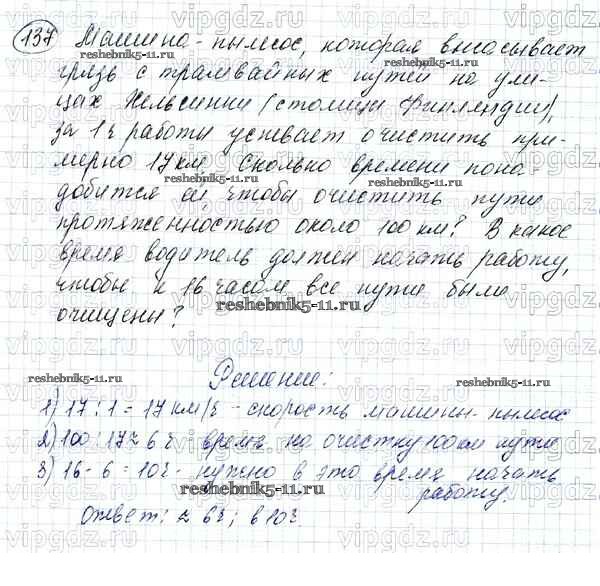 137 Машина-пылесос, которая высасывает
грязь с трамвайных путей на ули-
цах Хельсинки (столицы Финляндии),
за 1 ч работы успевает очистить при-
мерно 17 км. Сколько времени пона-
добится ей, чтобы очистить пути
протяженностью около 100 км? В какое
время водитель должен начать работу,
чтобы к 16 часам все пути были
очищены?
Решение:
1) 17 : 1 = 17 км/ч - скорость машины-пылесос
2) 100 : 17 ≈ 6 ч - время на очистку 100 км пути
3) 16 - 6 = 10 ч - нужно в это время начать
работу.
Ответ: ≈ 6 ч; в 10 ч.
vipgdz.ru
reshebnik5-11.ru